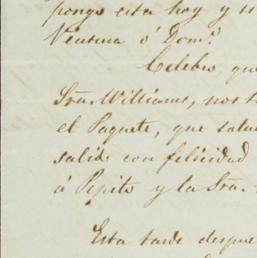 pongo esta hoy y
Ventura ó Domo.
Celebro que
Sra. Williams, nos
el Paquete, que
salió con felicidad
á Pepito y la Sra.
Esta tarde despue